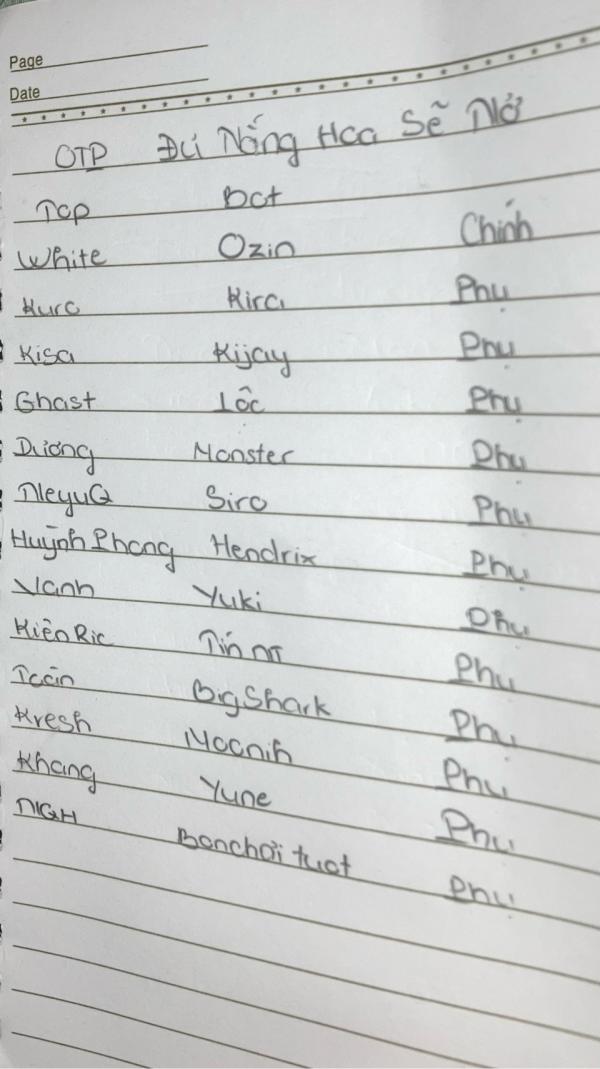 Page
Date
OTP Đủ Nắng Hoa Sẽ Nở
Top Bot
White Ozin Chính
Kuro Kira Phụ
Kisa Kijay Phụ
Ghost Lôc Phụ
Dương Monster Phụ
NeyuQ Siro Phụ
Huỳnh Phong Hendrix Phụ
Vanh Yuki Phụ
Kiên Ric Tín nt Phụ
Toàn BigShark Phụ
Kresh Mocnih Phụ
Khang Yune Phụ
NGH Bonchơi tuot Phụ